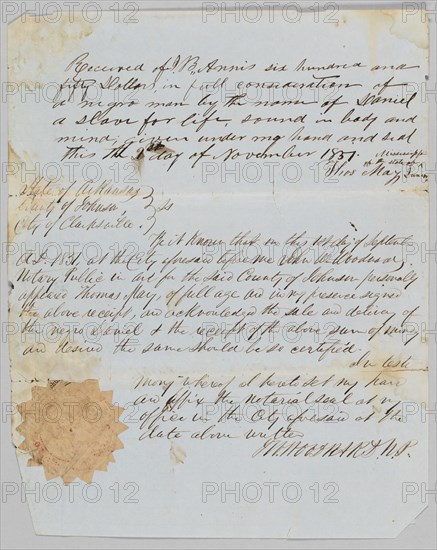 Received of J. B. Annis six hundred and
fifty Dollars, in full consideration of
a negro man by the name of Daniel
a slave for life, sound in body and
mind; given under my hand and seal
this the day of November 1851.
Thos May
State of Arkansas
County of Johnson } ss
City of Clarksville.
Be it Known that on this day of
A.D. 1851, at the City aforesaid before me
Notary Public in and for the Said County of Johnson personally
appeared Thomas May, of full age and in my presence signed
the above receipt, and acknowledged the sale and delivery of
the negro Daniel & the receipt of the above sum of money
and desired the same should be so certified.
In testi
mony whereof I hereto set my hand
and affix the notarial seal at my
office in the City aforesaid at the
date above written
PHOTO12